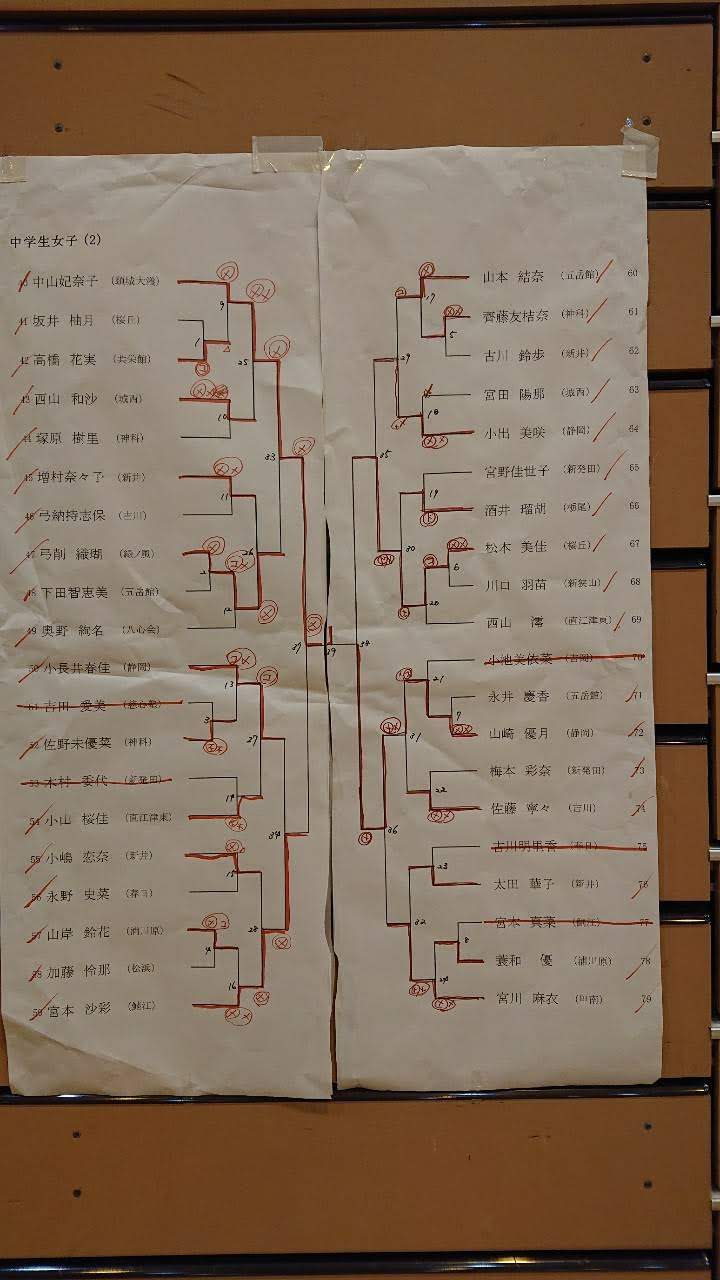 中学生女子(2)
40 中山妃奈子 (頸城大瀁)
41 坂井 柚月 (桜丘)
42 高橋 花実 (共栄館)
43 西山 和沙 (城西)
44 塚原 樹里 (神科)
45 増村奈々子 (新井)
46 弓納持志保 (吉川)
47 弓削 織瑚
48 下田智恵美 (五岳館)
49 奥野 絢名 (八心会)
50 小長井春佳 (静岡)
51 吉田 愛美
52 佐野未優菜 (神科)
53 木村 委代 (新発田)
54 小山 桜佳 (直江津東)
55 小嶋 恋奈 (新井)
56 永野 史菜 (春日)
57 山岸 鈴花 (浦川原)
58 加藤 怜那 (松浜)
59 宮本 沙彩 (鯖江)
山本 結奈 (五岳館) 60
齊藤友桔奈 (神科) 61
古川 鈴歩 (新井) 62
宮田 陽那 (城西) 63
小出 美咲 (静岡) 64
宮野佳世子 (新発田) 65
酒井 瑠胡 (栃尾) 66
松本 美佳 (桜丘) 67
川口 羽苗 (新狭山) 68
西山 澪 (直江津東) 69
小池美依菜 (吉岡) 70
永井 慶香 (五岳館) 71
山崎 優月 (静岡) 72
梅本 彩奈 (新発田) 73
佐藤 寧々 (吉川) 74
古川明里香 (春日) 75
太田 華子 (新井) 76
宮本 真菜 (鯖江) 77
蓑和 優 (浦川原) 78
宮川 麻衣 79